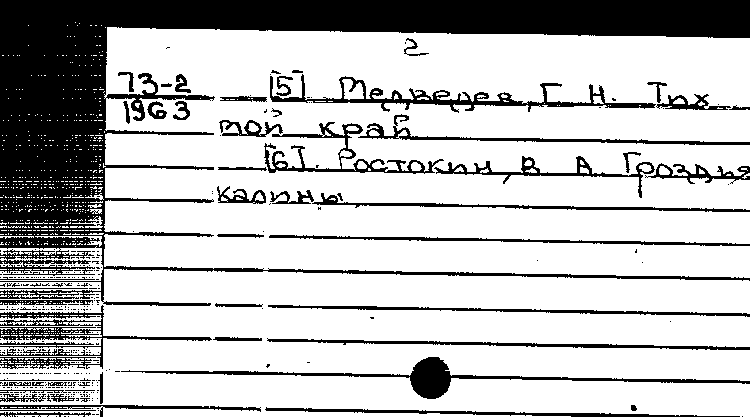 2
73-2 [5] Медведев, Г. Н. Тих
1963
мой край
[6]. Ростокин, В. А. Гроздья
калины